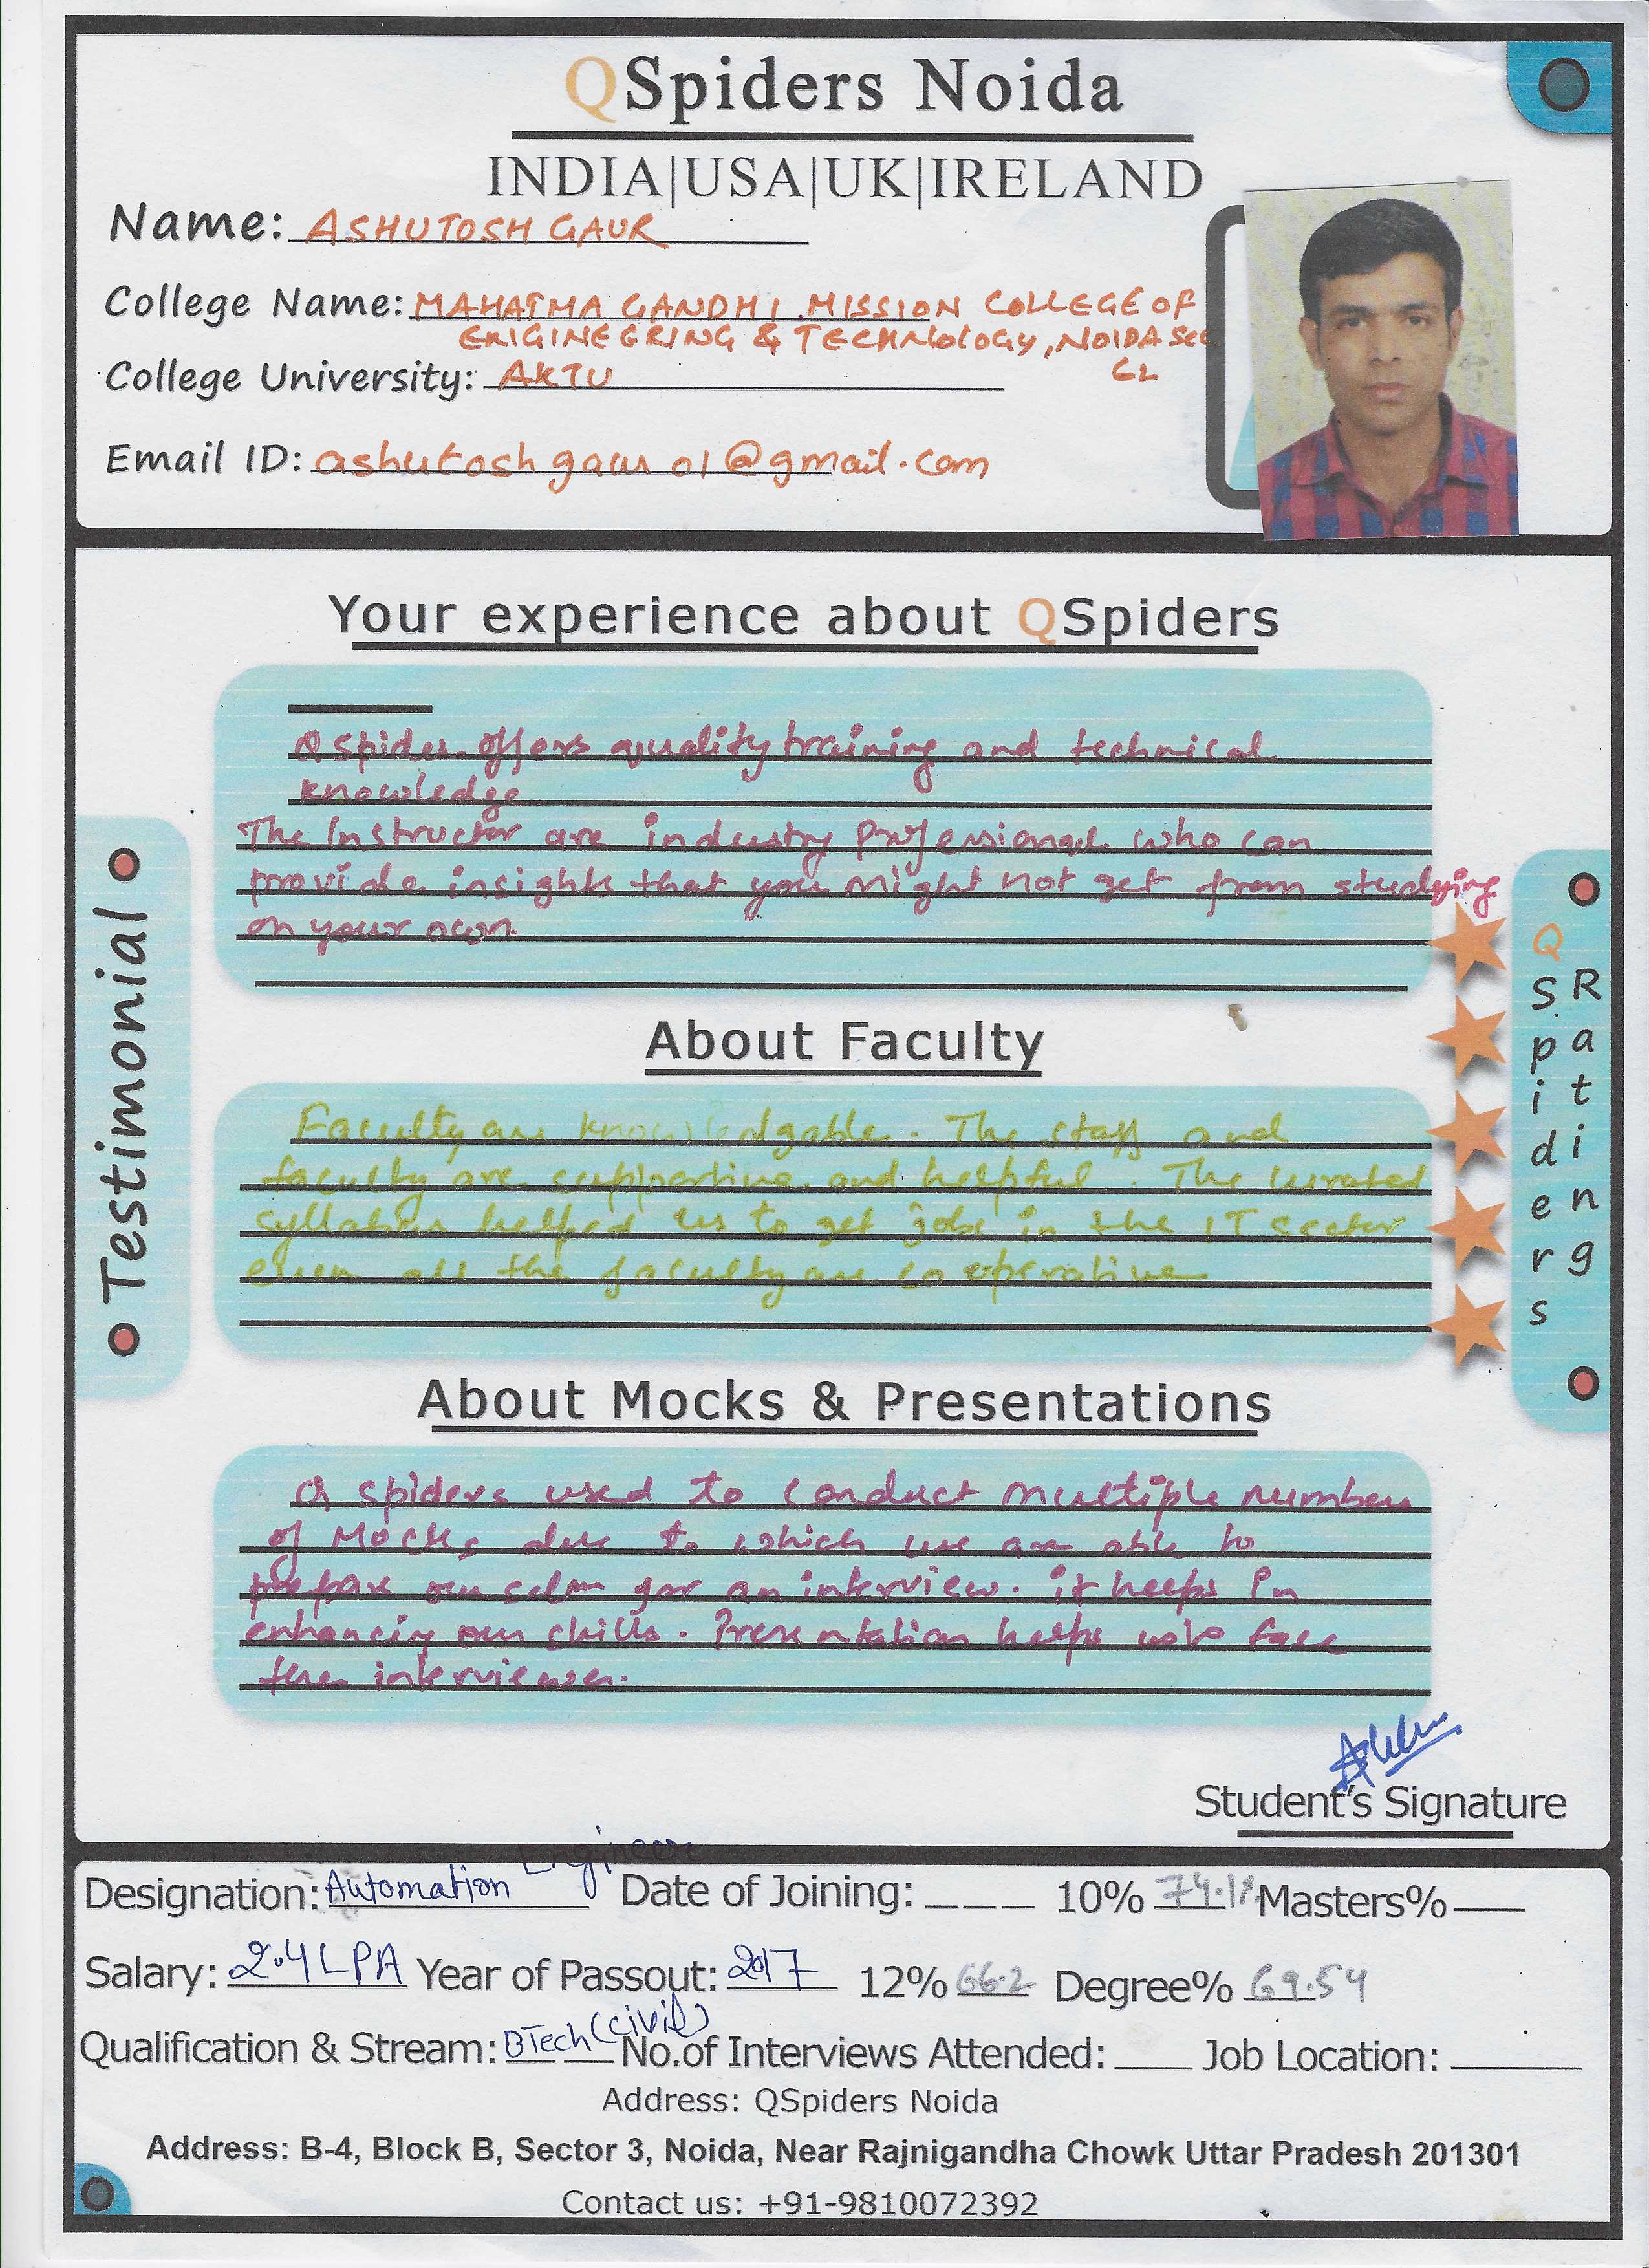 QSpiders Noida
INDIA|USA|UK|IRELAND
Name: ASHUTOSH GAUR
College Name: MAHATMA GANDHI MISSION COLLEGE OF
ENIGINEGRING & TECHNology, NOIDA Sec
62
College University: AKTU
Email ID: ashutoshgaur01@gmail.com
Your experience about QSpiders
Q spider offers quality training and technical
knowledge
The Instructor are industry Professional who can
provide insights that you might not get from studying
on your own.
About Faculty
Faculty are knowledgable. The staff and
faculty are supportive and helpful. The curated
syllabus helped us to get jobs in the IT sector
even all the faculty are cooperative
About Mocks & Presentations
Q spiders used to conduct multiple numbers
of Mocks due to which we are able to
prepare our selves for an interview. it helps in
enhancing our skills. Presentation helps us to face
the interviewer.
Testimonial
QSpiders
Rating
Student's Signature
Designation: Automation Engineer Date of Joining: 10% 74.1 Masters%
Salary: 2.4 LPA Year of Passout: 2017 12% 66.2 Degree% 69.54
Qualification & Stream: BTech (civil) No.of Interviews Attended: Job Location:
Address: QSpiders Noida
Address: B-4, Block B, Sector 3, Noida, Near Rajnigandha Chowk Uttar Pradesh 201301
Contact us: +91-9810072392